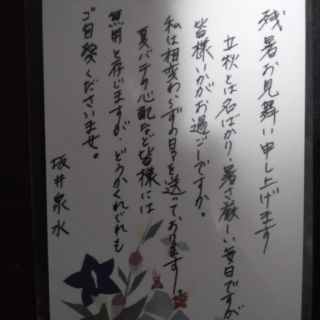 残暑お見舞い申し上げます
立秋とは名ばかり、暑さ厳しい毎日ですが
皆様いかがお過ごしですか。
私は相変わらずの日々を送っております
夏バテの心配など皆様には
無用と存じますが、どうかくれぐれも
ご自愛くださいませ。
坂井泉水